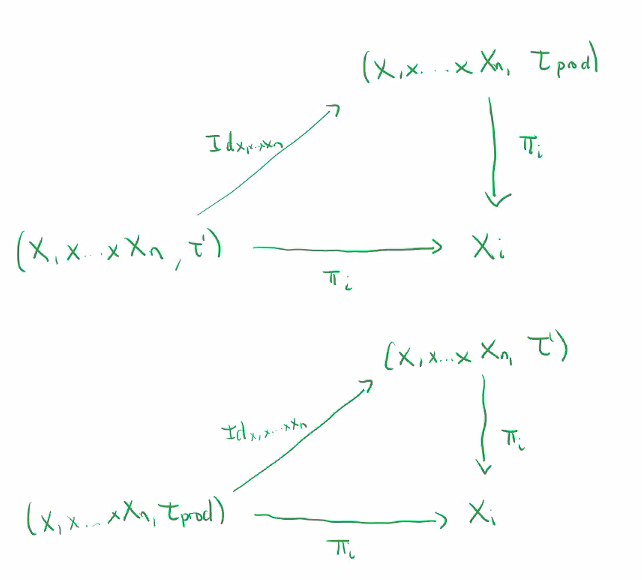 (X₁x...x Xₙ, τprod)
Id x₁x...xxₙ
πᵢ
(X₁x...x Xₙ, τ') Xᵢ
πᵢ
(X₁x...x Xₙ, τ')
Id x₁x...xxₙ
πᵢ
(X₁x...xXₙ, τprod) Xᵢ
πᵢ